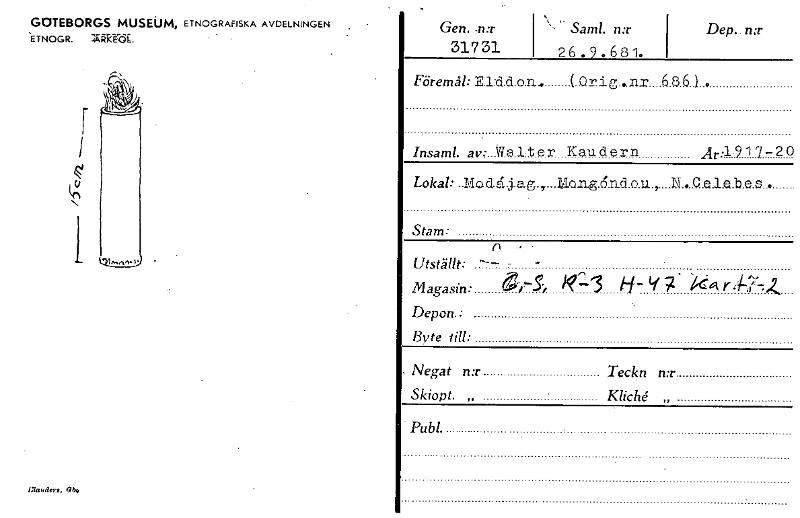 GÖTEBORGS MUSEUM, ETNOGRAFISKA AVDELNINGEN
ETNOGR. ARKEOL.
15 cm
Gen. n:r Saml. n:r Dep. n:r
31731 26.9.681.
Föremål: Elddon. (Orig.nr 686).
Insaml. av: Walter Kaudern År: 1917-20
Lokal: Modájag, Mongóndou, N.Celebes.
Stam:
Utställt:
Magasin: G.-S. R-3 H-47 Kart.-2
Depon.:
Byte till:
Negat n:r Teckn n:r
Skiopt. „ Kliché „
Publ.